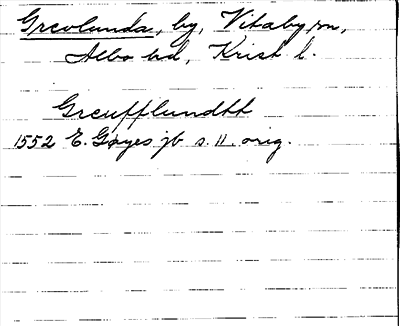 Grevlunda, by, Vitaby sn,
Albo hd, Krist l.
Greufflundtt
1552 E. Gøyes jb s. 11. orig.